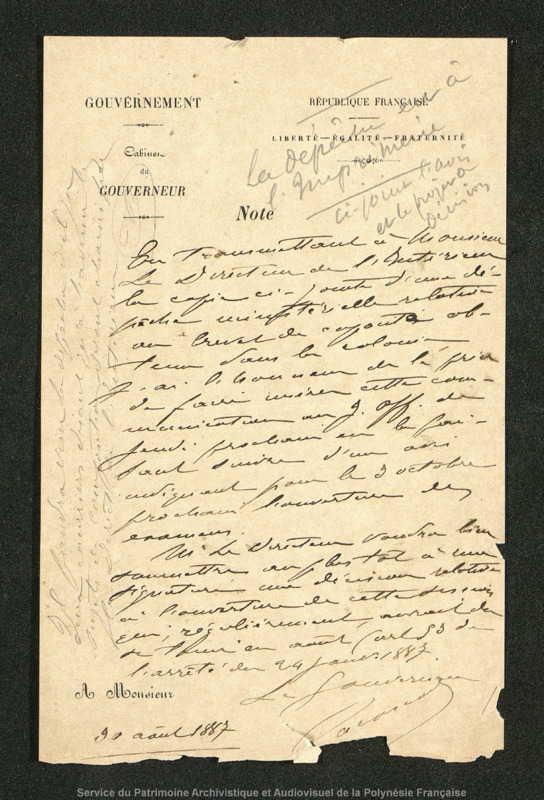 GOUVERNEMENT
Cabinet
du
GOUVERNEUR
RÉPUBLIQUE FRANÇAISE
LIBERTÉ—ÉGALITÉ—FRATERNITÉ
La dépêche est à
l'Imprimerie
ci-joint l'avis
et le projet de
décision
Note
En transmettant à Monsieur
Le Directeur de l'Intérieur
la copie ci-jointe d'une dé-
pêche ministérielle relative
au brevet de capacité ob-
tenu dans la colonie
j'ai l'honneur de le prier
de faire insérer cette com-
munication au J. off. de
jeudi prochain en la fai-
sant suivre d'un avis
indiquant pour le 3 octobre
prochain l'ouverture des
examens.
Mr Le Directeur voudra bien
soumettre au plus tôt à ma
signature une décision relative
à l'ouverture de cette session
qui, régulièrement, aurait dû
se tenir en août (art 53 de
l'arrêté du 24 1887.
Le Gouverneur
A Monsieur
30 août 1887
Il faudra viser la dépêche et
Service du Patrimoine Archivistique et Audiovisuel de la Polynésie Française